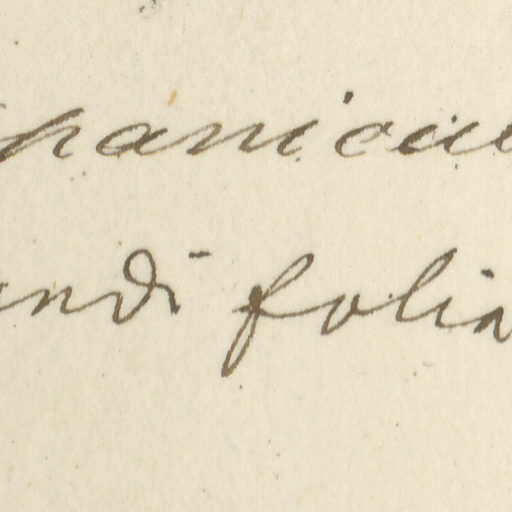 panicu
andi folia